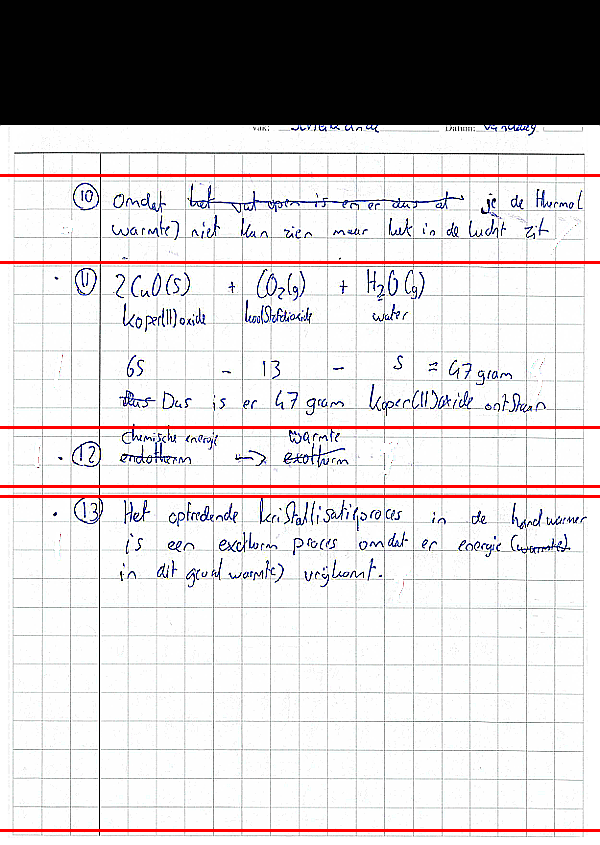 vak: Scheikunde Datum: Vandaag
10 Omdat het vat open is en er dus at je de thermol
warmte) niet kan zien maar het in de lucht zit
11 2CuO(s) + CO2(g) + H2O(g)
koper(II)oxide koolstofdioxide water
65 - 13 - 5 = 47 gram
dus Dus is er 47 gram koper(II)oxide ontstaan
chemische energie warmte
12 endotherm -> exotherm
13 Het optredende kristallisatieproces in de handwarmer
is een exotherm proces omdat er energie (warmte)
in dit geval warmte) vrijkomt.